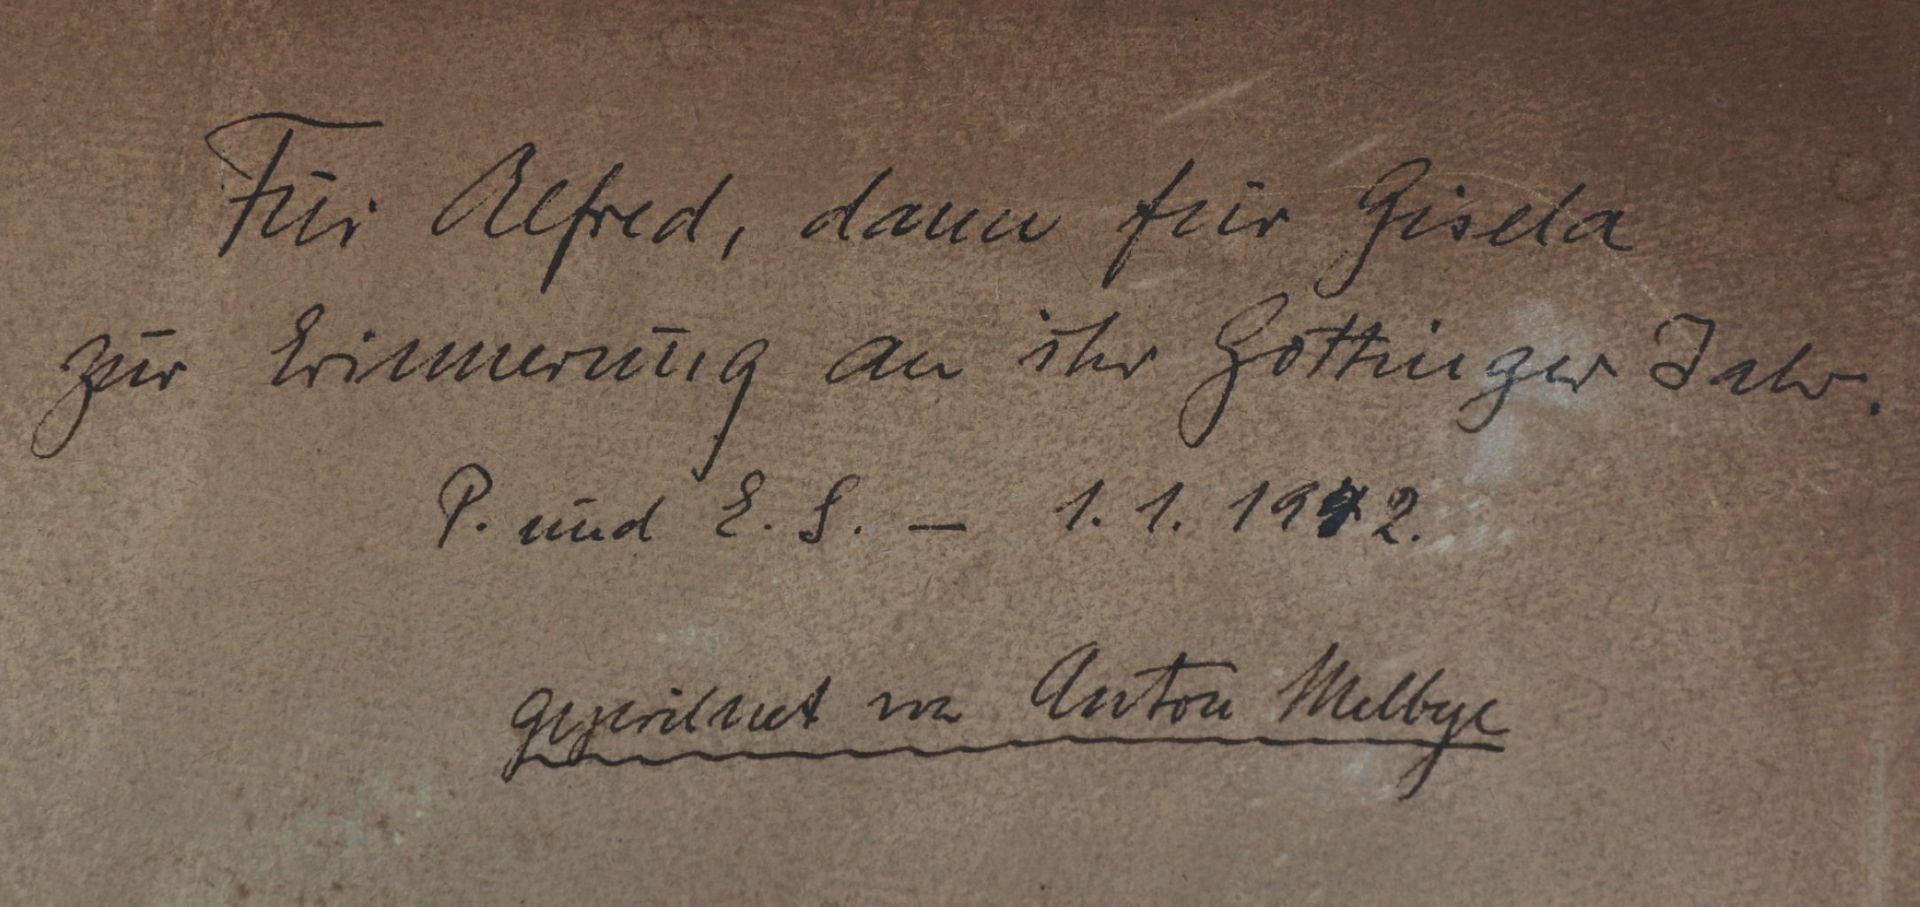 Für Alfred, dann für Gisela
zur Erinnerung an ihr Göttinger Jahr.
P. und E. S. – 1.1.1972.
gezeichnet von Anton Melbye